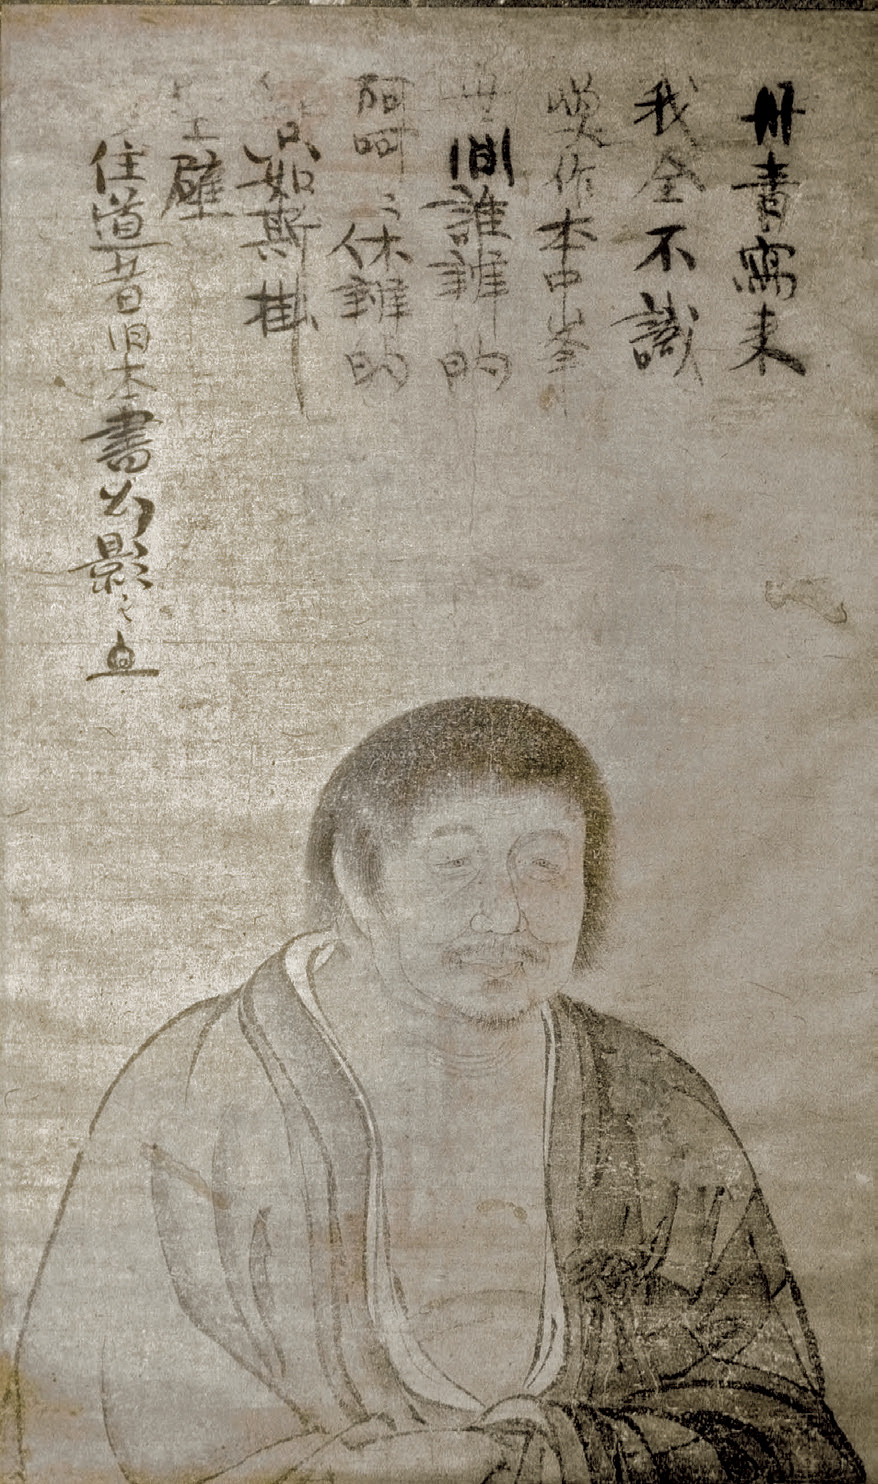 丹青寫來
我全不識
喚作本中峯
世間誰誰的
呵呵〻休誰的
只如斯掛
空壁
住道昔旧本書幻影之直